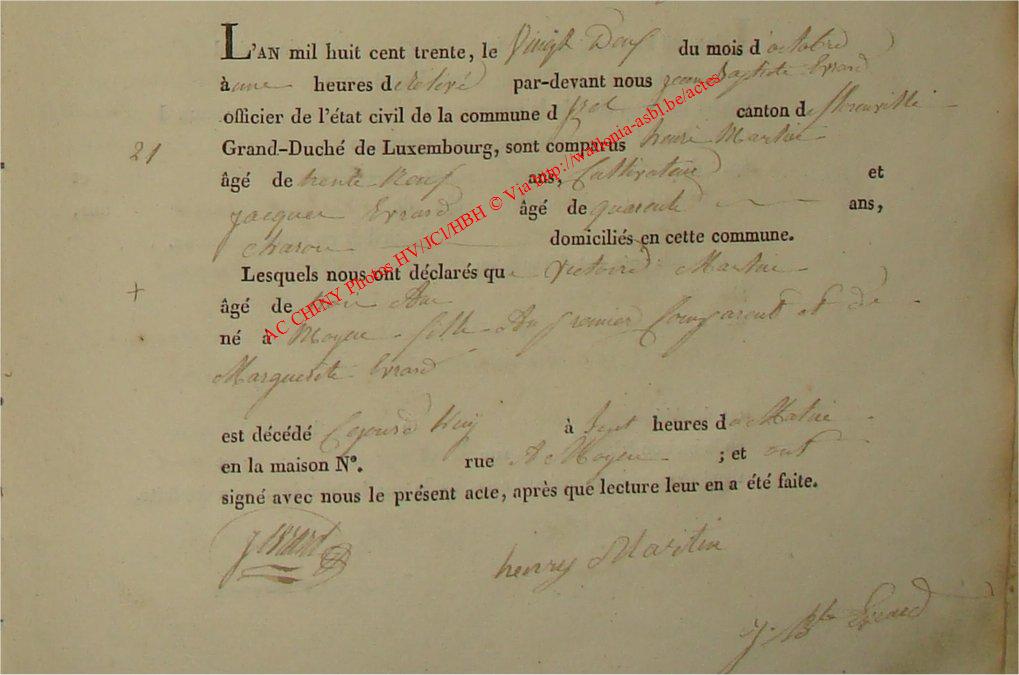 L'AN mil huit cent trente, le Vingt Deux du mois d'octobre
à une heures de relevé par-devant nous jean Baptiste Errard
officier de l'état civil de la commune d canton de florenville
21
Grand-Duché de Luxembourg, sont comparus henri Martin
âgé de trente Neuf ans, Cultivateur et
jacques Errard âgé de quarente ans,
charon domiciliés en cette commune.
Lesquels nous ont déclarés que Victoire Martin
+
âgé de trois Ans
né à Moyen fille Du premier Comparent Et de
Marguerite Errard
est décédé Cejourd'huy à Sept heures du Matin
en la maison N°. rue A Moyen ; et ont
signé avec nous le présent acte, après que lecture leur en a été faite.
J errard
henry Martin
J. Bte Errard
AC CHINY Photos HV/JCl/HBH © Via http://wallonia-asbl.be/actes/